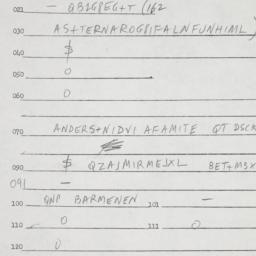 021 — QB1G8EG+T (162
030 AS+TERNAROG8IFALNFUNHIML)
040 $
050 0
060 0
070 ANDERS+NIDVI AFAMITE QT DSCK
090 $ QZAJMIRMEJXL BET+M3X
091 —
100 QNP BARMENEN 101 —
110 0 111 0
120 0